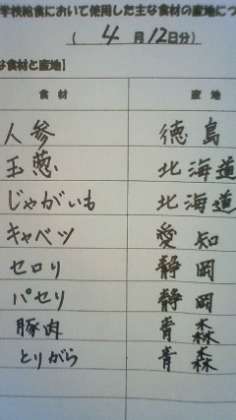 学校給食において使用した主な食材の産地につ
( 4 月 12 日分 )
な食材と産地】
食 材 産 地
人参 徳島
玉葱 北海道
じゃがいも 北海道
キャベツ 愛知
セロリ 静岡
パセリ 静岡
豚肉 青森
とりがら 青森